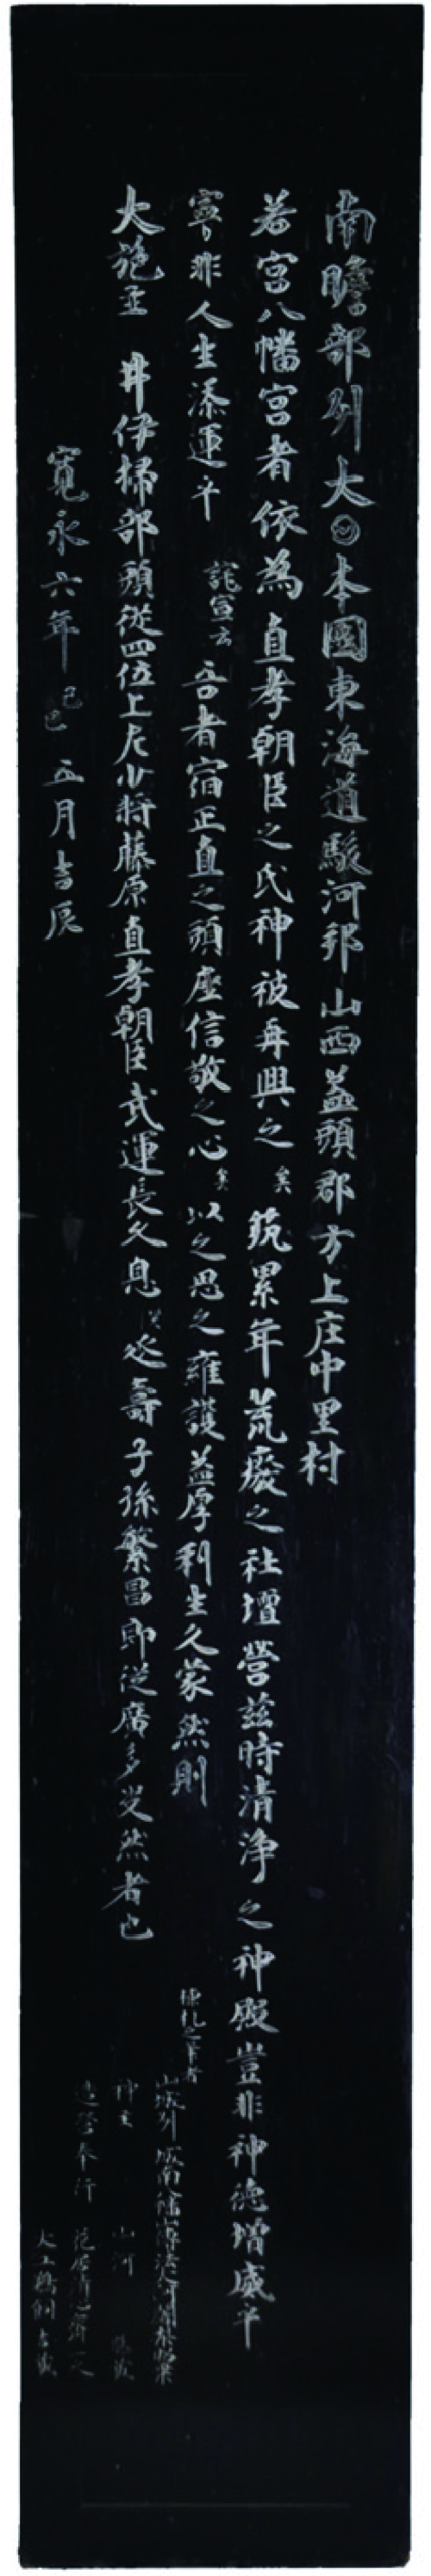 南瞻部列大日本國東海道駿河邦山西益頭郡方上庄中里村
若宮八幡宮者依為直孝朝臣之氏神被再興之矣筑累年荒癈之社壇營茲時清浄之神殿豈非神徳増威乎
寧非人生添運乎 詫宣云吾者宿正直之頭座信敬之心矣以之思之雍護益厚利生久蒙然則
大施主 井伊掃部頭従四位上左少将藤原直孝朝臣武運長久息災延壽子孫繁昌即従廣多
然者也
寛永六年己巳五月吉辰
棟札之筆者
山城列城南八幡山
神主 山河
造營奉行
大工